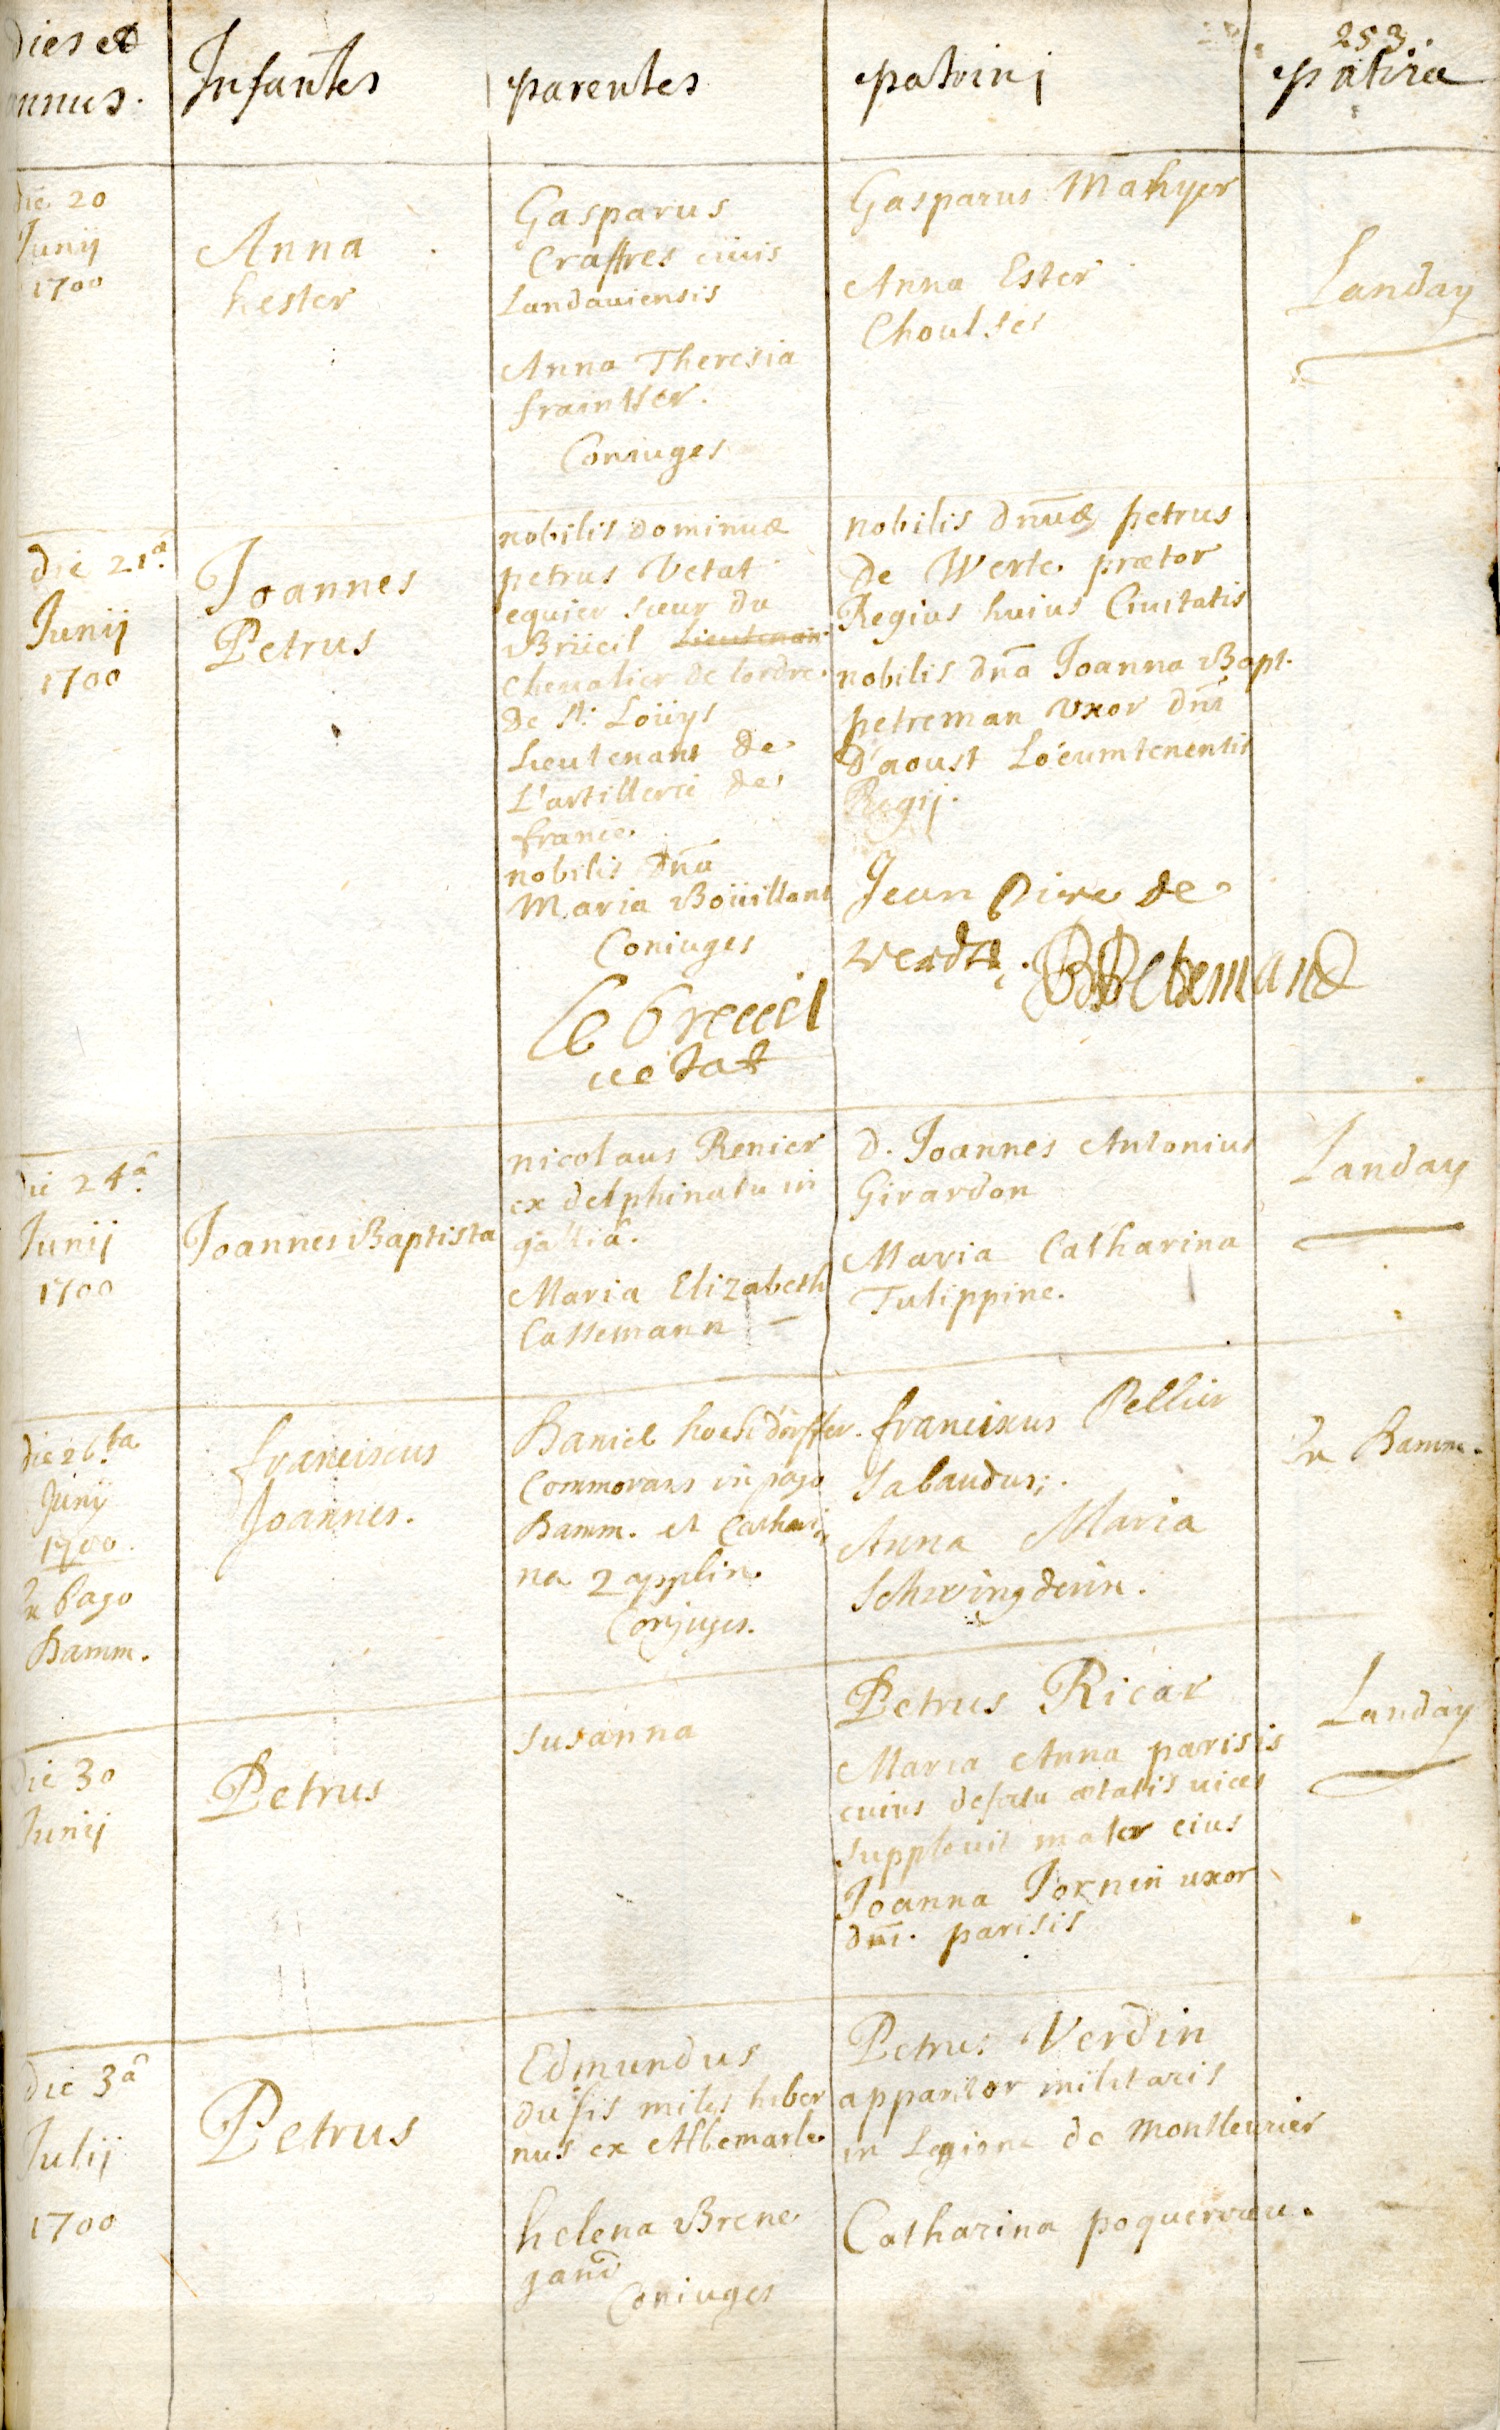 253.
dies et
annus.
Infantes
parentes
patrini
patria
die 20
Junij
1700
Anna
hester
Gasparus
Craffres ciuis
Landauiensis
Anna Theresia
fraintzer.
Coniuges
Gasparus Mahyer
Anna Ester
Choulses
Landau
die 21ª
Junij
1700
Joannes
Petrus
nobilis dominus
petrus Vetat
equier sieur du
Brüeil Lieutenan
Chevalier de lordre
de St. Loüys
Lieutenant de
L'artillerie de
france
nobilis dña
Maria Boüillant
Coniuges
Le breueil
uetat
nobilis dñus petrus
de Werte prætor
Regius huius Ciuitatis
nobilis dña Joanna Bapt.
petreman vxor dñi
d'aoust Locumtenentis
Regij.
Jean Pire de
verdte. B Petemand
die 24ª
Junij
1700
Joannes Baptista
nicolaus Renier
ex delphinatu in
gallia.
Maria Elizabeth
Cassemann –
D. Joannes Antonius
Girardon
Maria Catharina
Tulippine.
Landau
die 26ta
Junij
1700.
In Pago
Damm.
franciscus
Joannes.
Daniel hochdörffer.
Commorans in pago
Damm. et Cathari
na Zapplin
Conjuges.
franciscus Pellier
Sabaudus;.
Anna Maria
Schwingderin.
In Damm.
die 30
Junij
Petrus
Susanna
Petrus Ricar
Maria Anna parisis
cuius defectu ætatis uices
suppleuit mater eius
Joanna Jornein uxor
dñi. parisis
Landau
die 3ª
Julij
1700
Petrus
Edmundus
dufis miles hiber
nus ex Albemarle
helena Brene
gand
Coniuges
Petrus Verdin
apparitor militaris
in Legione de Montleurier
Catharina poquereau.